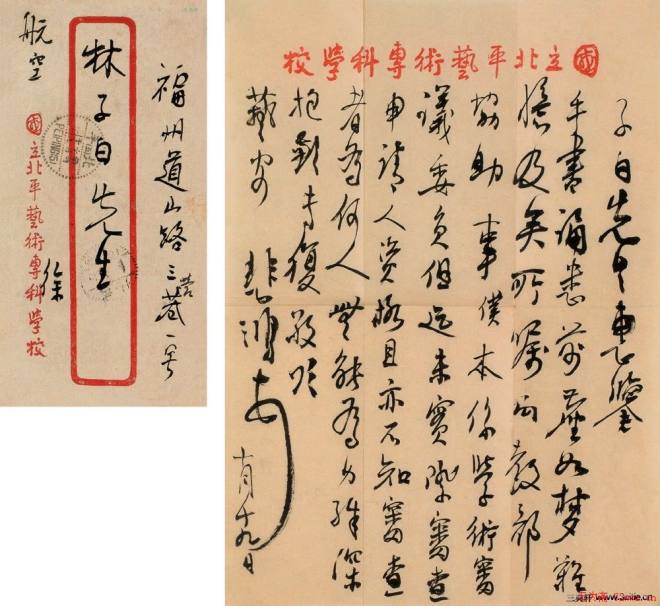 福州道山路三營巷一号
林子白先生
航空
國立北平藝術專科學校
徐
PEIPING
國立北平藝術專科學校
子白先生惠鑒
手書誦悉前塵如夢難
憶及矣所囑向教部
協助事僕本係學術審
議委員但迄未實際審查
申請人資格且亦不知審查
者為何人無能為力殊深
抱歉專復敬頌
藝安
悲鴻
九日